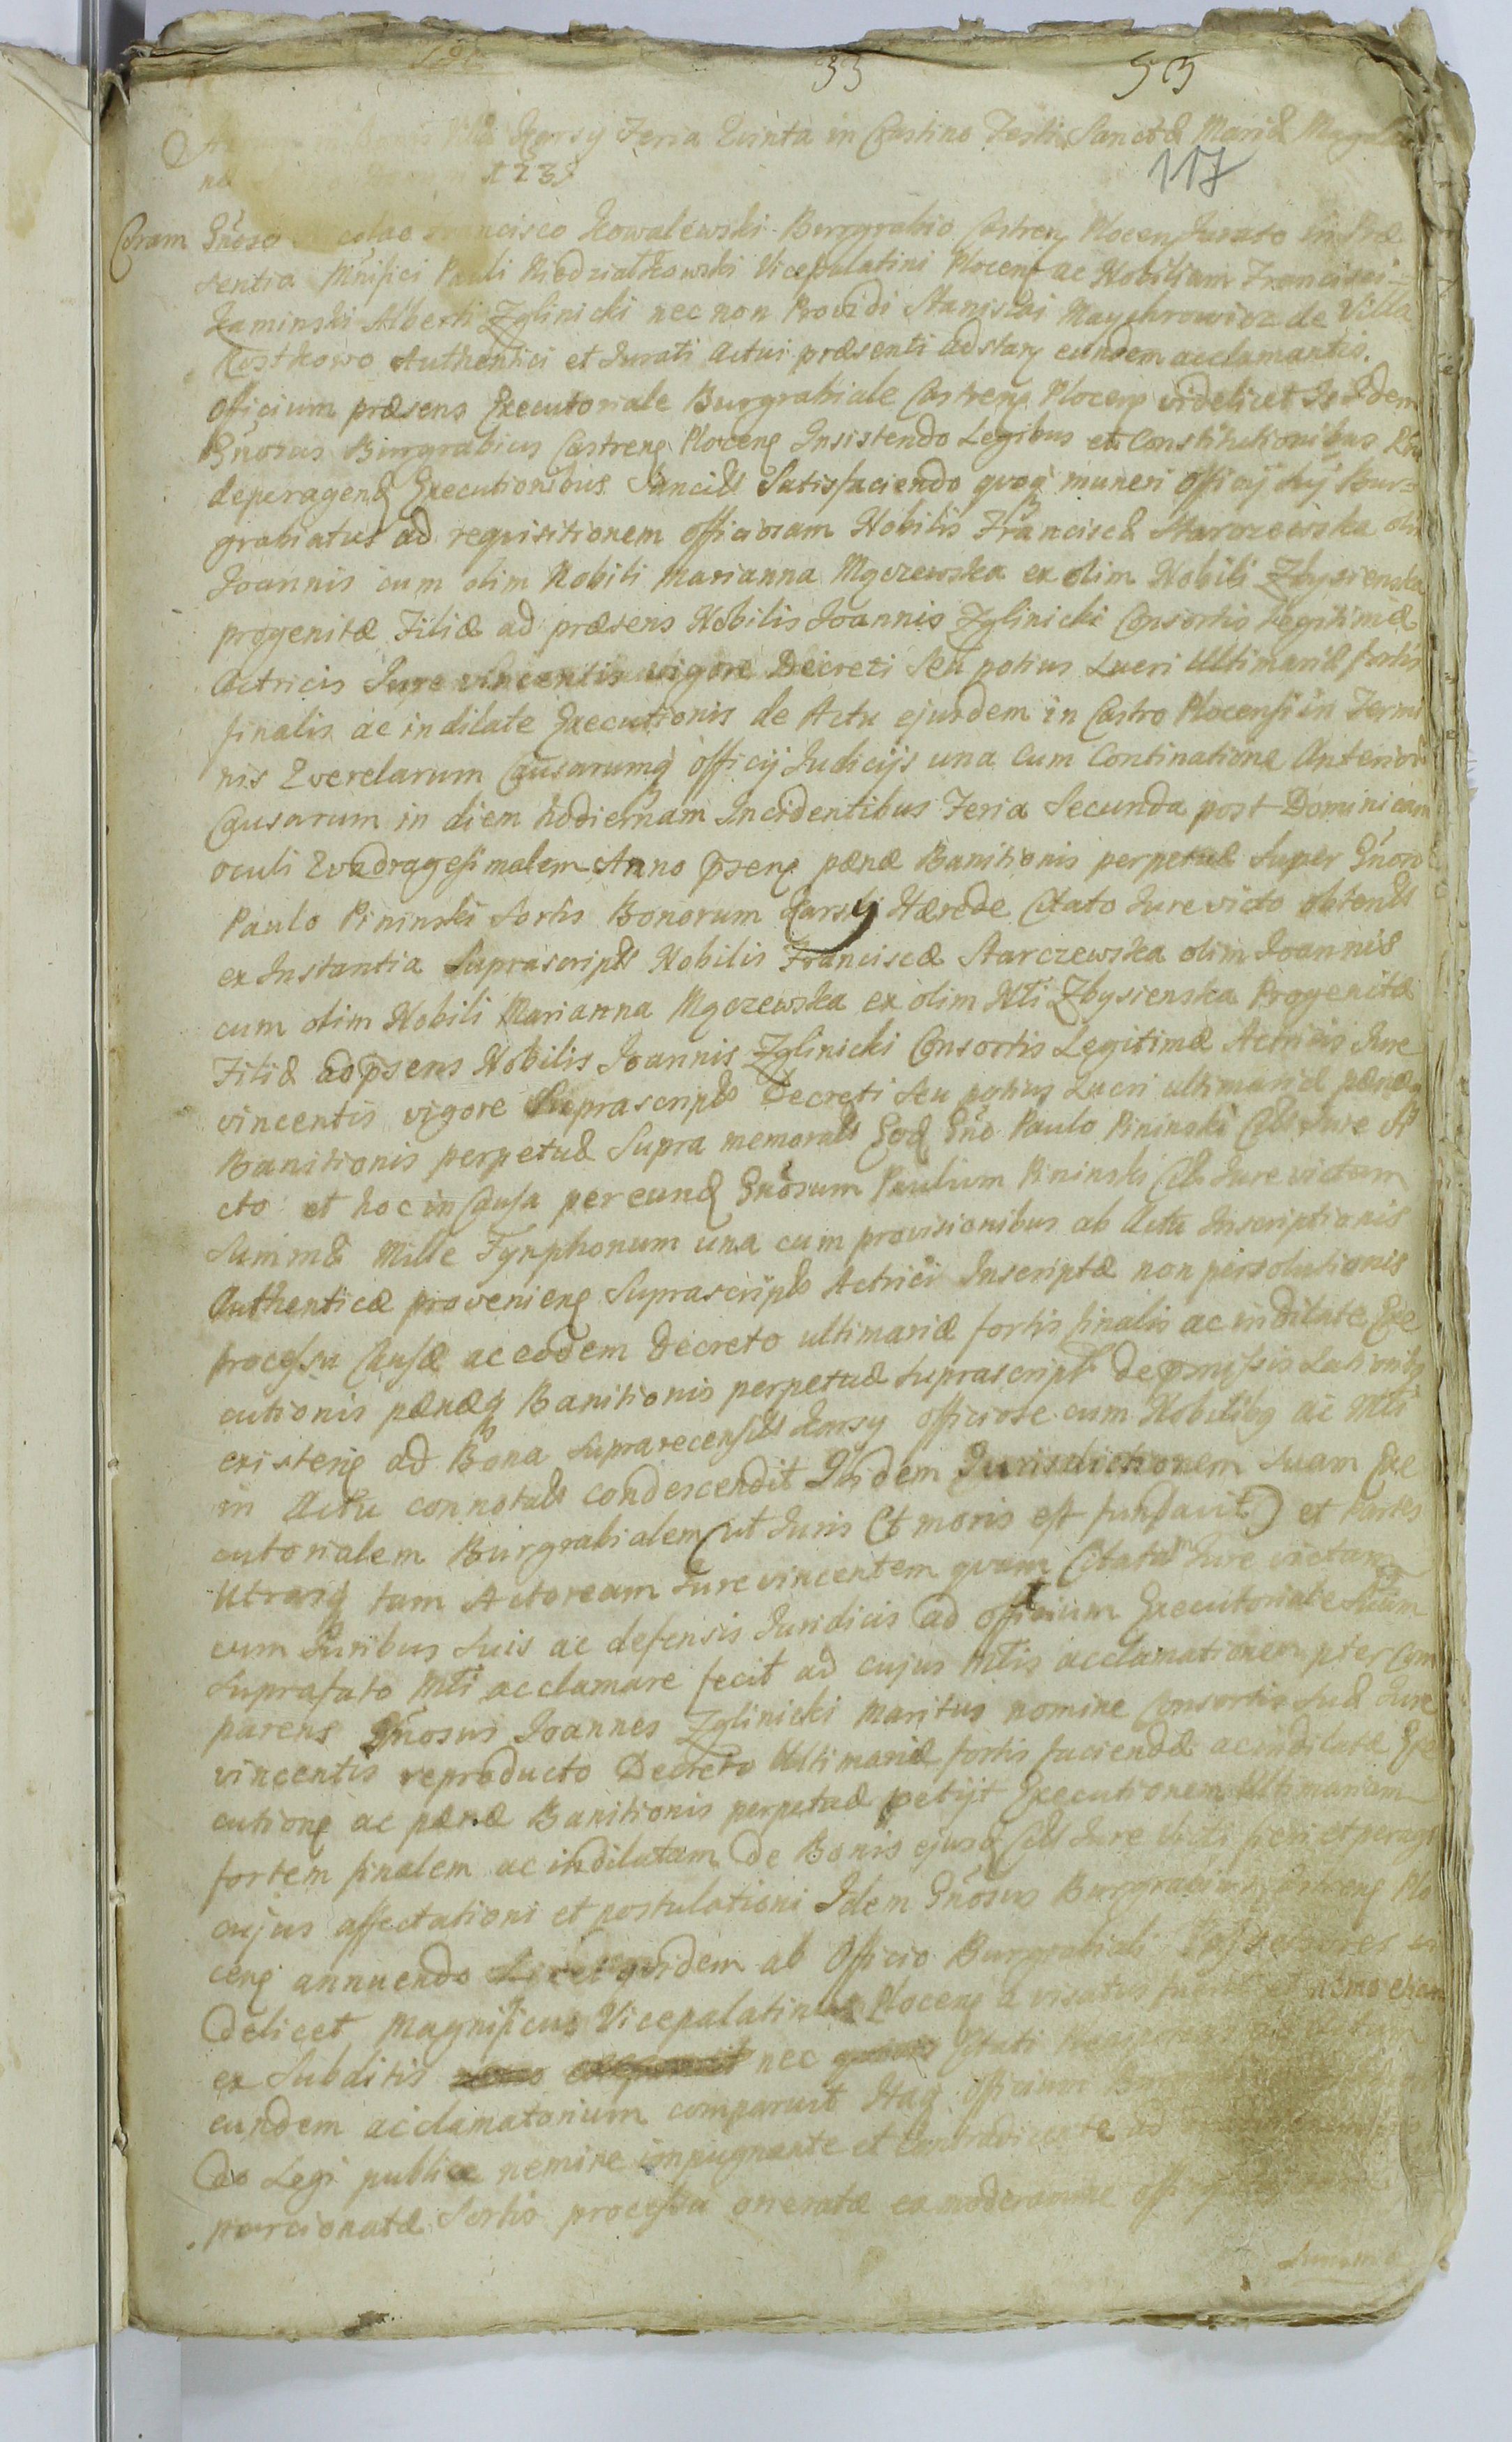 33 53
Karsy Feria Quinta in Crastino Festi Sanctæ Mariæ Magdale
næ 1723
117
Coram Gñoso colao Francisco Kowalewski Burgrabio Castren Plocen Jurato in Præ
sentia Mnifici Pauli Niedziałkowski Vicepalatini Plocen ac Nobilium Francisci
Kaminski Alberti Zglinicki nec non Providi Stanislai Maychrowicz de Villa
Rostkowo Authentici et Jurati Actui præsenti adstan eundem acclamantis.
Officium præsens Executoriale Burgrabiale Castren Plocen videlicet Is Idem
Gñosus Burgrabius Castren Plocen Insistendo Legibus et Constitutionibus R
deperagend Executionibus Sancitis Satisfaciendo quoq muneri officij sui Bur=
grabiatus ad requisitionem officiosam Nobilis Franciscæ Starczewska olim
Joannis cum olim Nobili Marianna Mączewska ex olim Nobili Zbysienska
progenitæ Filiæ ad præsens Nobilis Joannis Zglinicki Consortis legitimæ
Actricis Jure vincentis vigore Decreti seu potius Lucri Ultimariæ fortis
finalis ac indilate Executionis de Actu ejusdem in Castro Plocensi in Termi
nis Querelarum Causarumq officij Judicijs una cum Continatione Anteriori
Causarum in diem hodiernam Incidentibus Feria Secunda post Dominicam
oculi Quadragesimalem Anno psen pænæ Banitionis perpetuæ super Gñoso
Paulo Pininski Sortis Bonorum Karsy Hærede Citato Jure victo obtent
ex Instantia Suprascript Nobilis Franciscæ Starczewska olim Joannis
cum olim Nobili Marianna Mączewska ex olim Nli Zbysienska Progenitæ
Filiæ ad psens Nobilis Joannis Zglinicki Consortis Legitimæ Actricis Jure
vincentis vigore Suprascript Decreti seu potius Lucri ultimariæ pænæq
Banitionis perpetuæ supra memorat Eod Gño Paulo Pininski Citt Jure vi
cto et hoc in Causa per eund Gñosum Paulum Pininski Citt Jure victum
Summæ Mille Tynphonum una cum provisionibus ab Actu Inscriptionis
Authenticæ provenien Suprascript Actrici Inscriptæ non persolutionis
processu Causæ ac eodem Decreto ultimariæ fortis finalis ac indilate Exe
cutionis pænæq Banitionis perpetuæ suprascript de pmissis Lationibq
existen ad Bona suprarecensit Karsy officiose cum Nobilibq ac Mli
in Actu connotat condescendit Ibidem Jurisdictionem suam Exe
cutorialem Burgrabialem (ut Juris et moris est fundavit) et Partes
Utrasq tam Actoream Jure vincentem quam Citatam Jure victam
cum Juribus suis ac defensis Juridicis ad officium Executoriale suum
suprafato Mli acclamare fecit ad cujus Mlis acclamationem pter Com
parens Gñosus Joannes Zglinicki Maritus nomine Consortis suæ Jure
vincentis reproducto Decreto Ultimariæ fortis faciendæ ac indilatæ Exe
cution ac pænæ Banitionis perpetuæ petijt Executionem Ultimariam
fortem finalem ac indilatam de Bonis ejusd Citt Jure victi fieri et peragi
cujus affectationi et postulationi Idem Gñosus Burgrabius Castren Plo
cen annuendo quidem ab Officio Burgrabiali Possessores vi
delicet Magnificus Vicepalatinus Plocen a visatus fuerit et nemo etiam
ex Subditis nec Citati
eundem acclamatorium comparuit Itaq officium
do Legi publicæ nemine impugnante et Contradicente ad
parcionatæ Sortis processu oneratæ ex moderamine officij
Summa